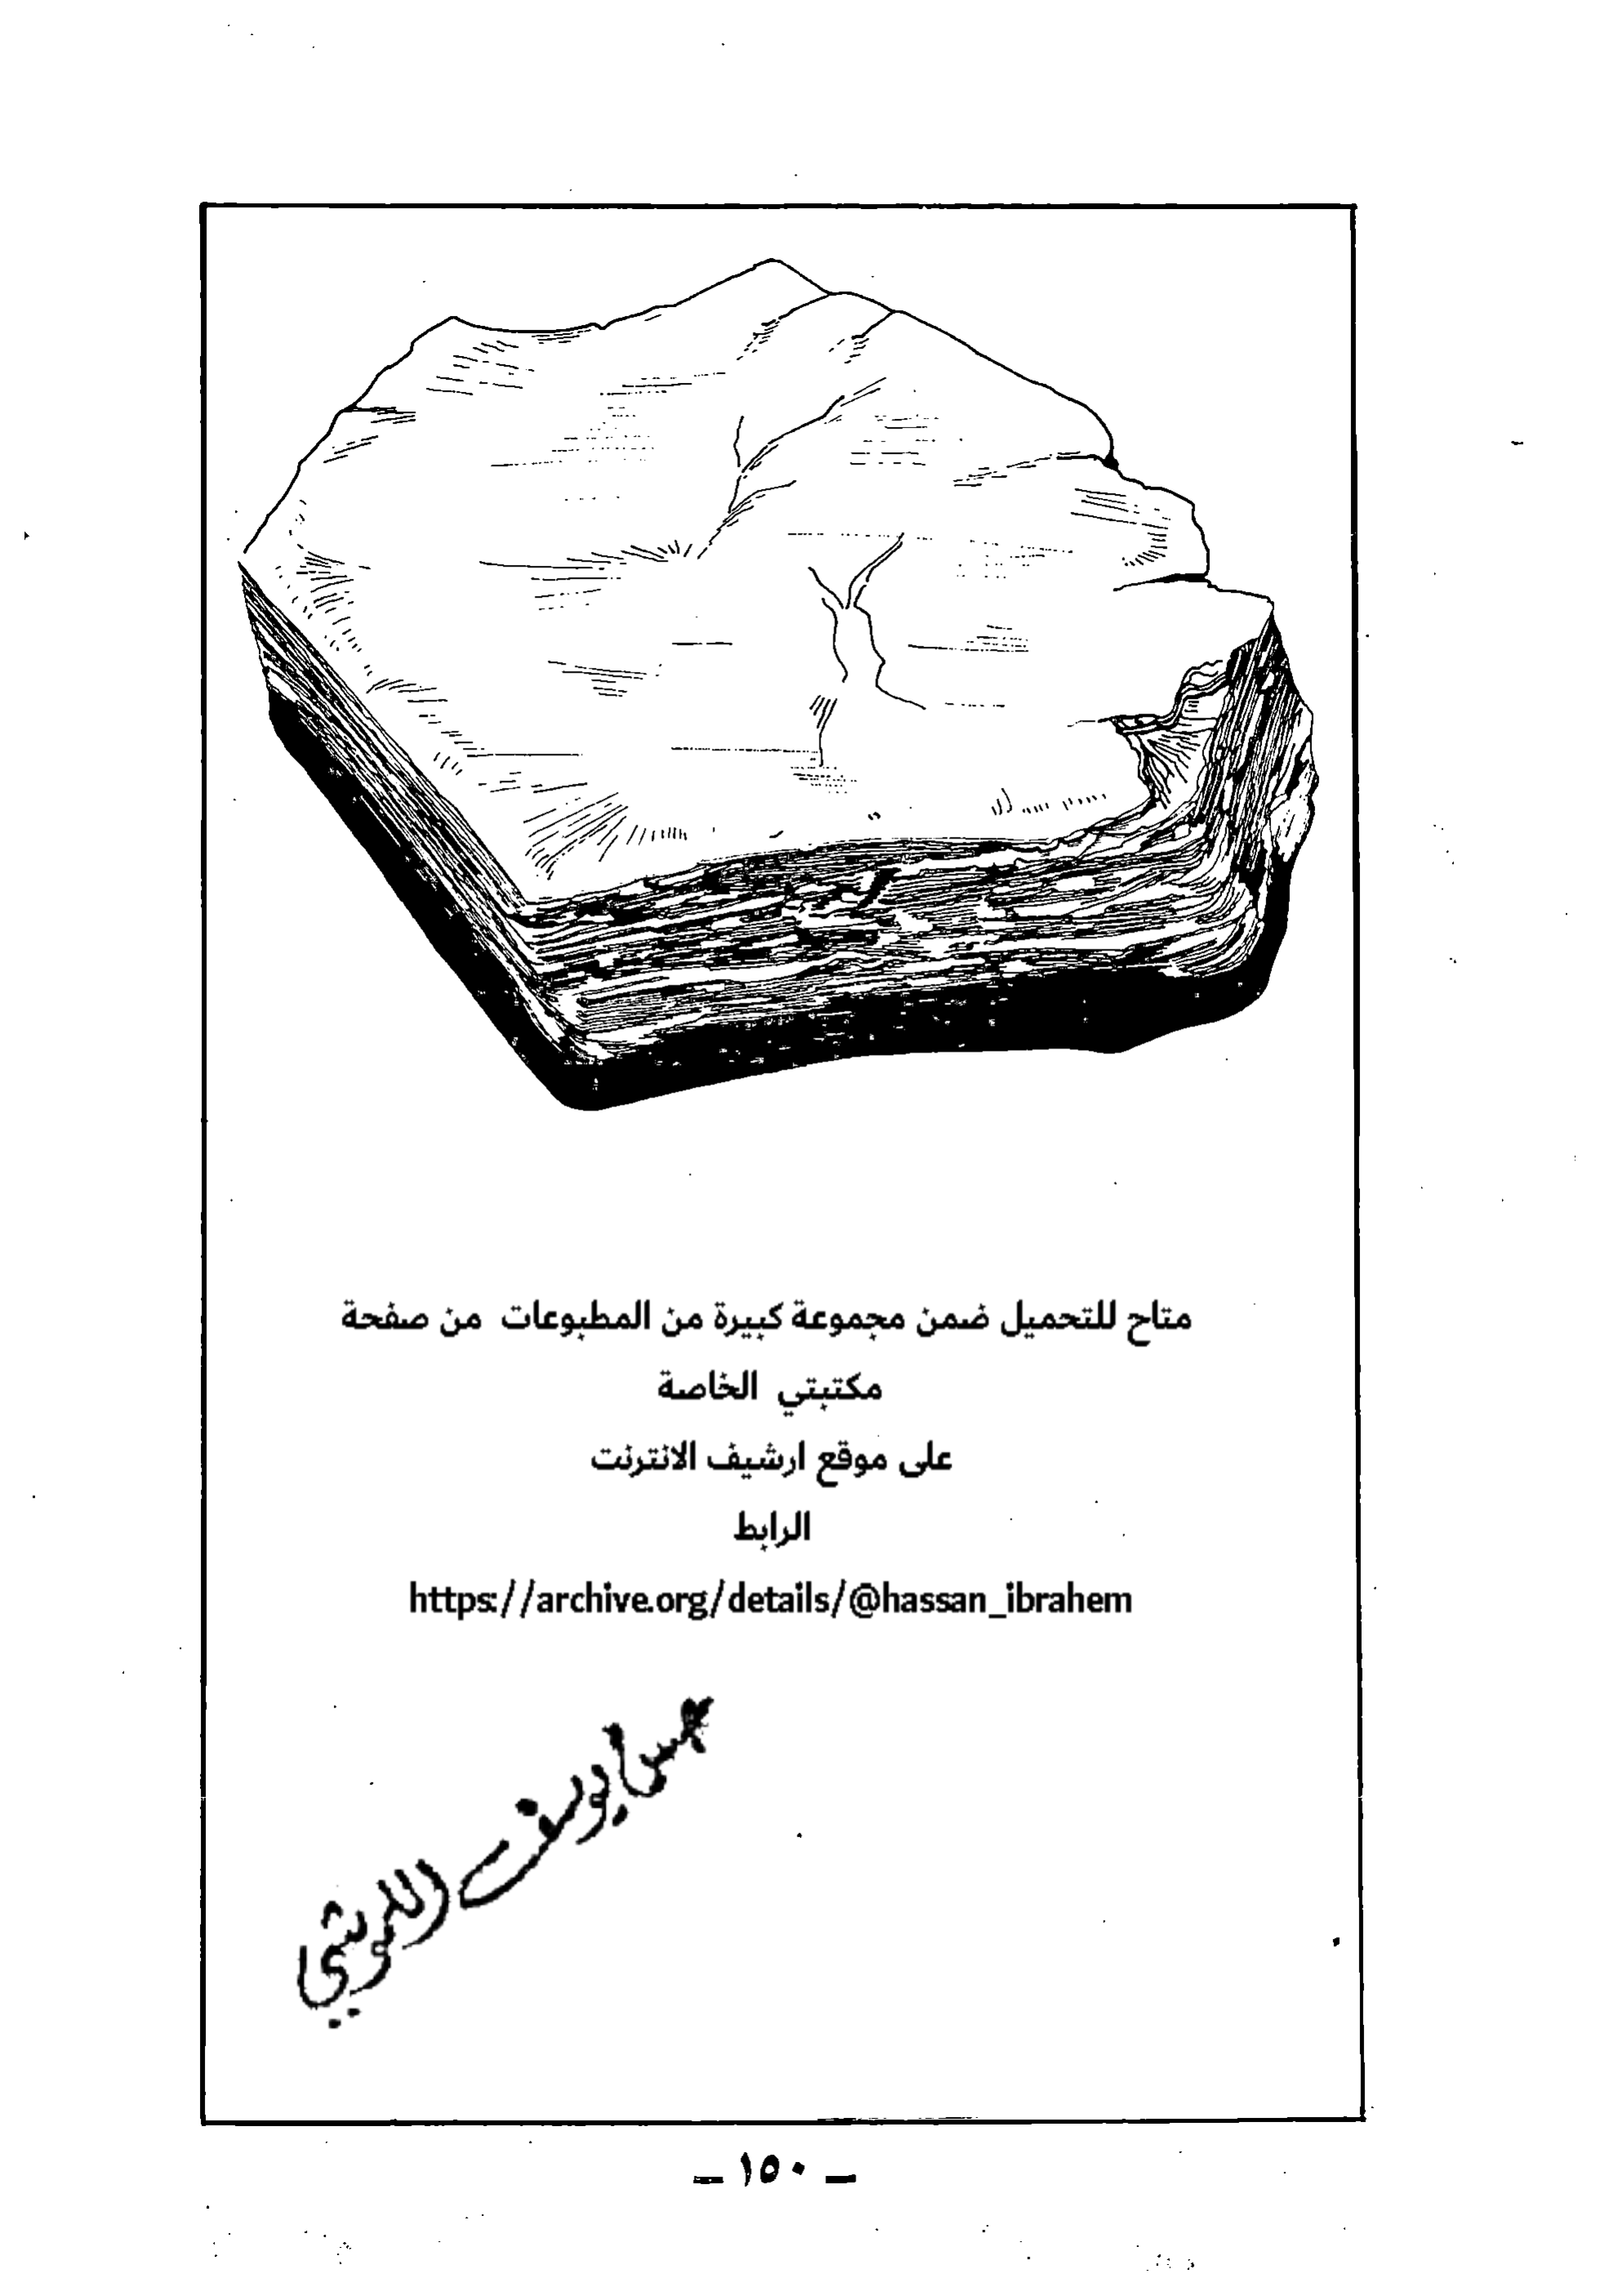 متاح للتحميل ضمن مجموعة كبيرة من المطبوعات من صفحة
مكتبتي الخاصة
على موقع ارشيف الانترنت
الرابط
https://archive.org/details/@hassan_ibrahem
يوسف
ـ ١٥٠ ـ